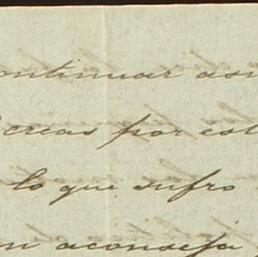 ontinuar asi
creas por est
lo que sufro
n aconseja